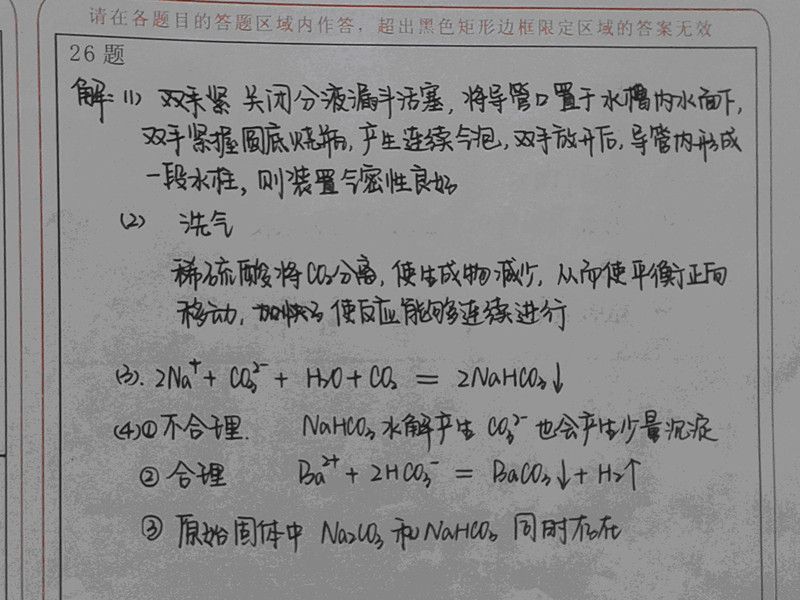 请在各题目的答题区域内作答，超出黑色矩形边框限定区域的答案无效
26题
解：(1) 双手紧 关闭分液漏斗活塞，将导管口置于水槽内水面下，
双手紧握圆底烧瓶，产生连续气泡，双手放开后，导管内形成
一段水柱，则装置气密性良好
(2) 洗气
稀硫酸将CO₂分离，使生成物减少，从而使平衡正向
移动，使反应能够连续进行
(3). 2Na⁺ + CO₃²⁻ + H₂O + CO₂ = 2NaHCO₃↓
(4)① 不合理. NaHCO₃水解产生 CO₃²⁻ 也会产生少量沉淀
② 合理 Ba²⁺ + 2HCO₃⁻ = BaCO₃↓ + H₂↑
③ 原始固体中 Na₂CO₃ 和 NaHCO₃ 同时存在